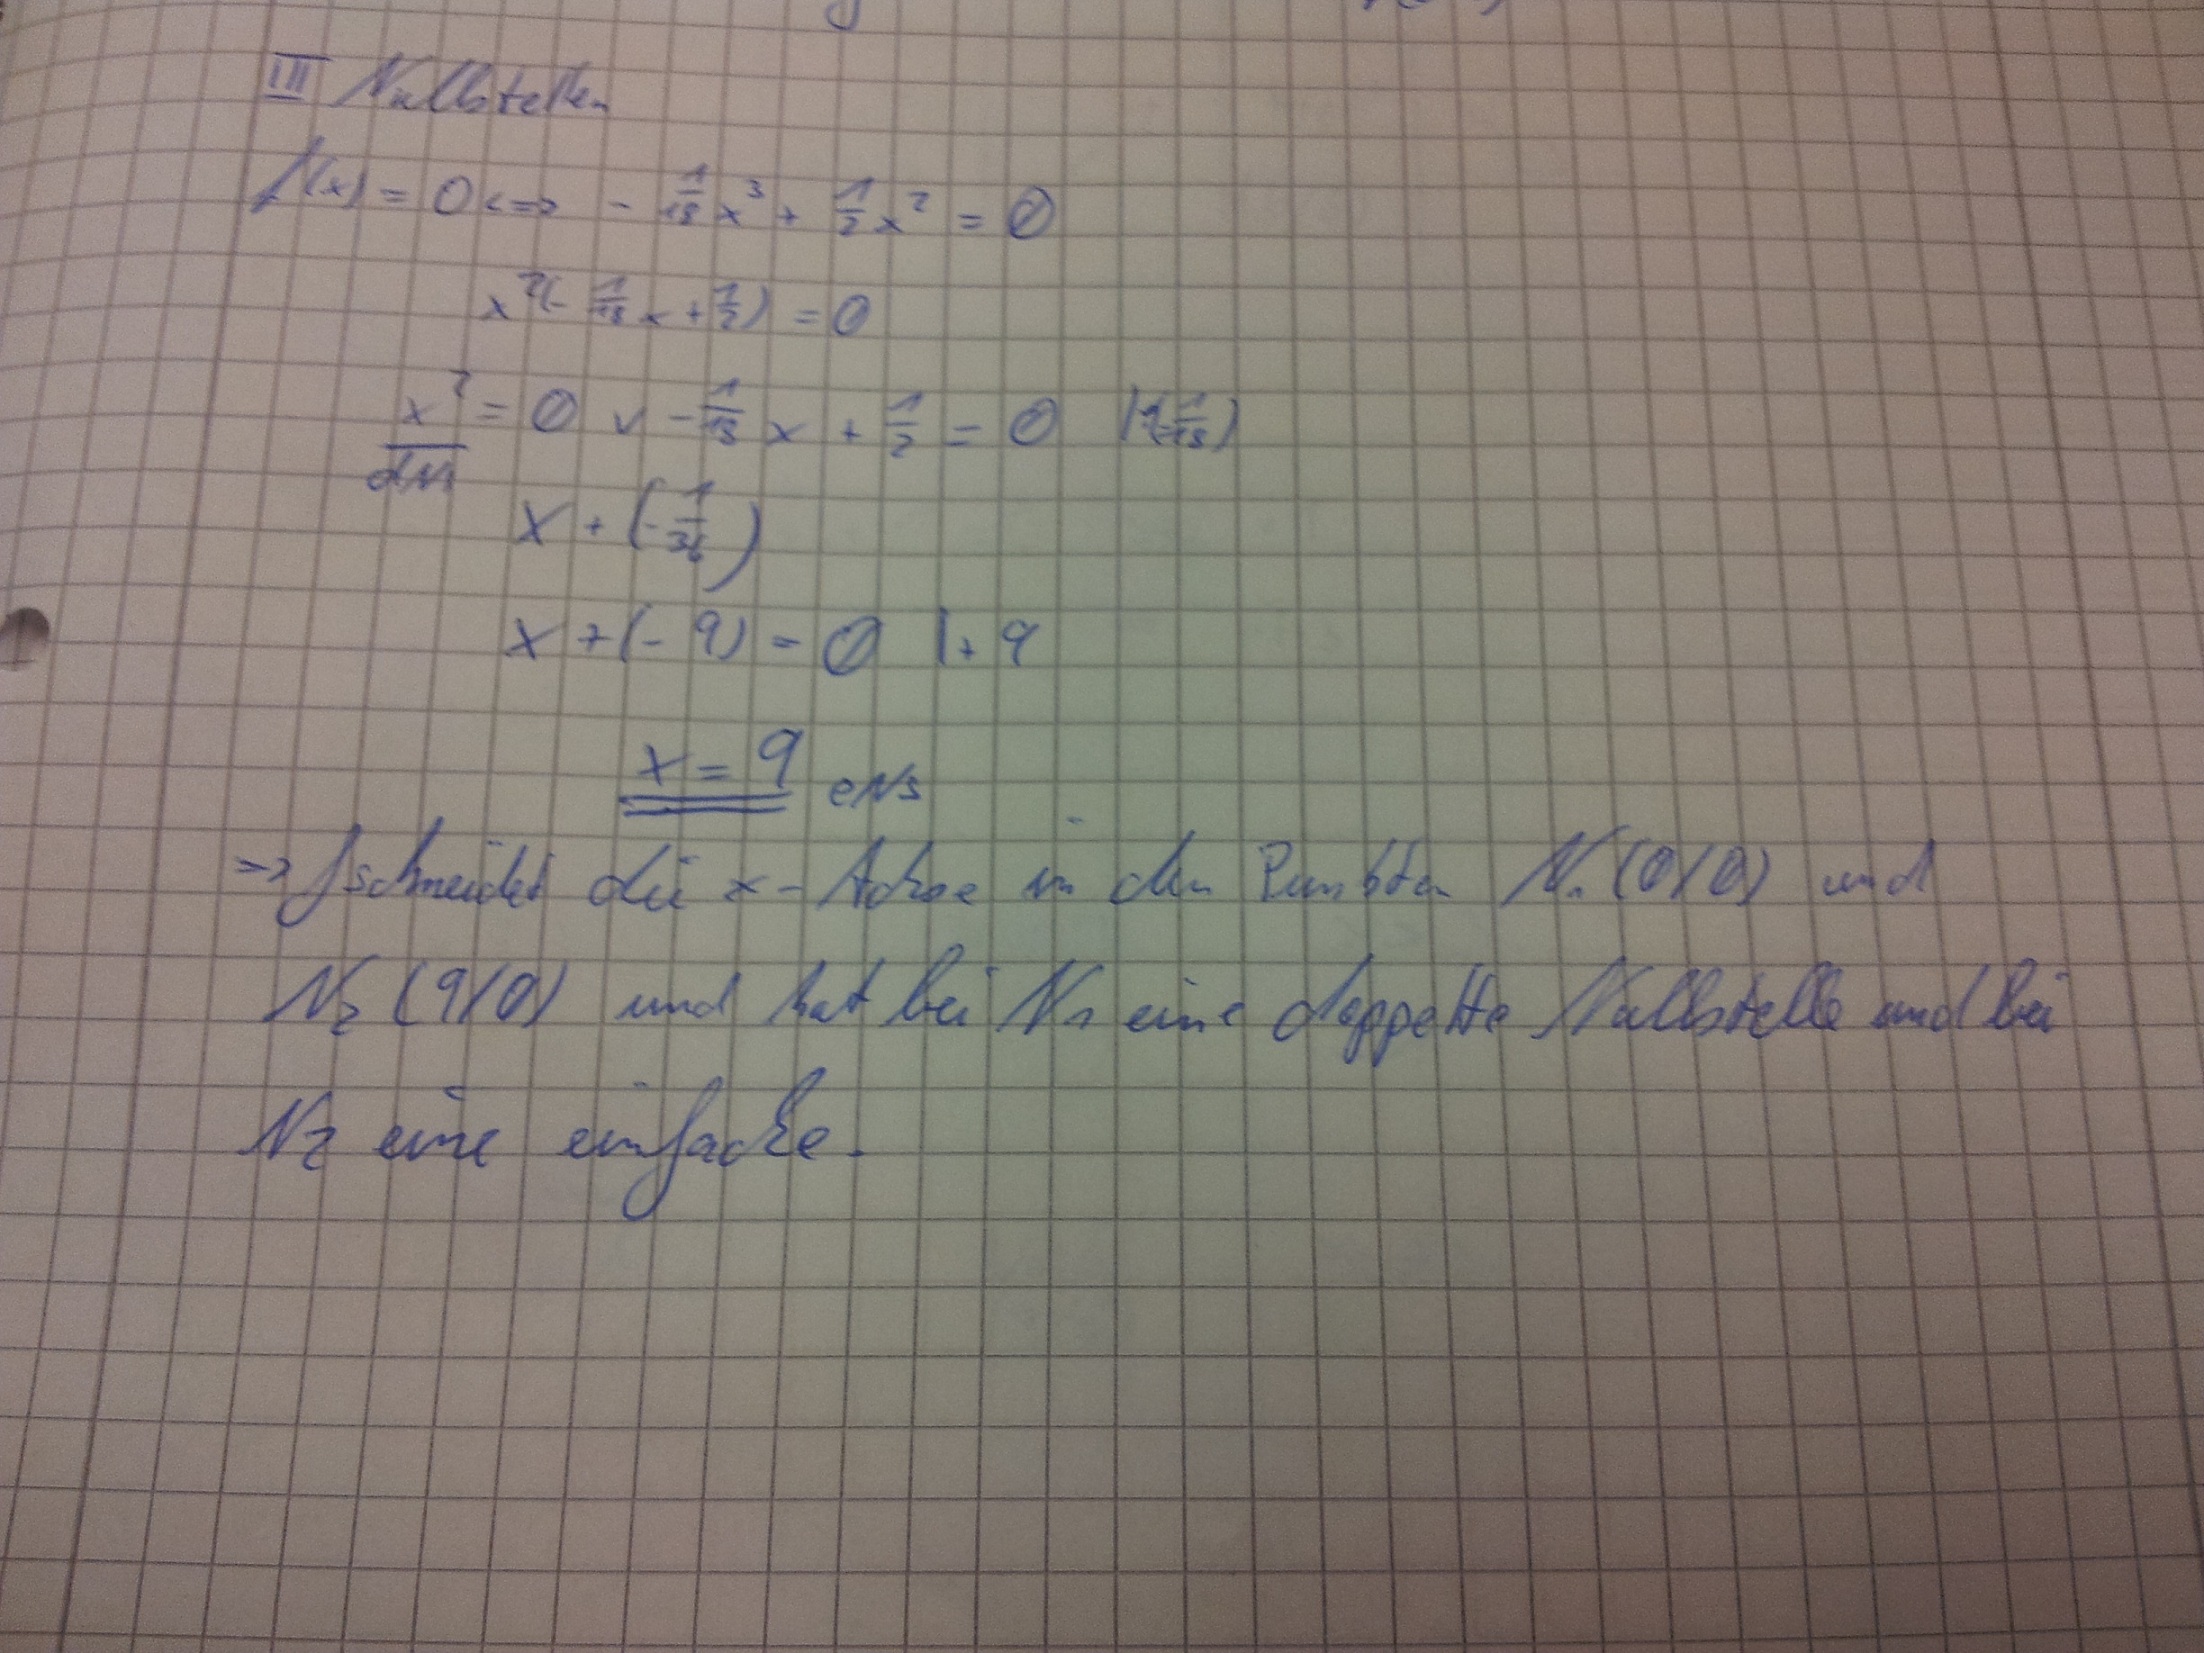 III Nullstellen
f(x) = 0 <=> - 1/18 x³ + 1/2 x² = 0
x²(- 1/18 x + 1/2) = 0
x² = 0 v - 1/18 x + 1/2 = 0 |:(-1/18)
dNs
x + (- 1/36)
x + (- 9) = 0 |+ 9
x = 9 eNs
=> f schneidet die x-Achse in den Punkten N₁ (0/0) und
N₂ (9/0) und hat bei N₁ eine doppelte Nullstelle und bei
N₂ eine einfache.